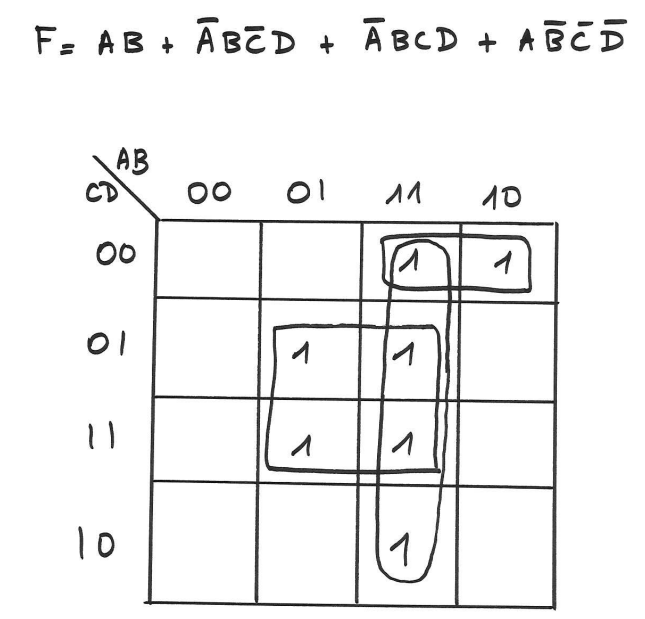 F= AB + A̅BC̅D + A̅BCD + AB̅C̅D̅
AB
CD 00 01 11 10
00 1 1
01 1 1
11 1 1
10 1